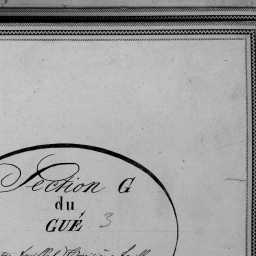 Section G
du
GUÉ 3